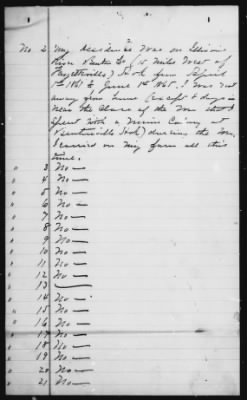 No 2 My residence was on Illinois
River Benton Co (15 Miles West of
Fayetteville) Ark from April
1st 1861 to June 1st 1865. I was not
away from home (except 4 days in
near the close of the War which I
spent with a Union Co'my at
Bentonville Ark) during the War.
I carried on my farm all this
time.
" 3 No —
" 4 No —
" 5 No —
" 6 No —
" 7 No —
" 8 No —
" 9 No —
" 10 No —
" 11 No —
" 12 No —
" 13 —
" 14 No —
" 15 No —
" 16 No —
" 17 No —
" 18 No —
" 19 No —
" 20 No —
" 21 No —